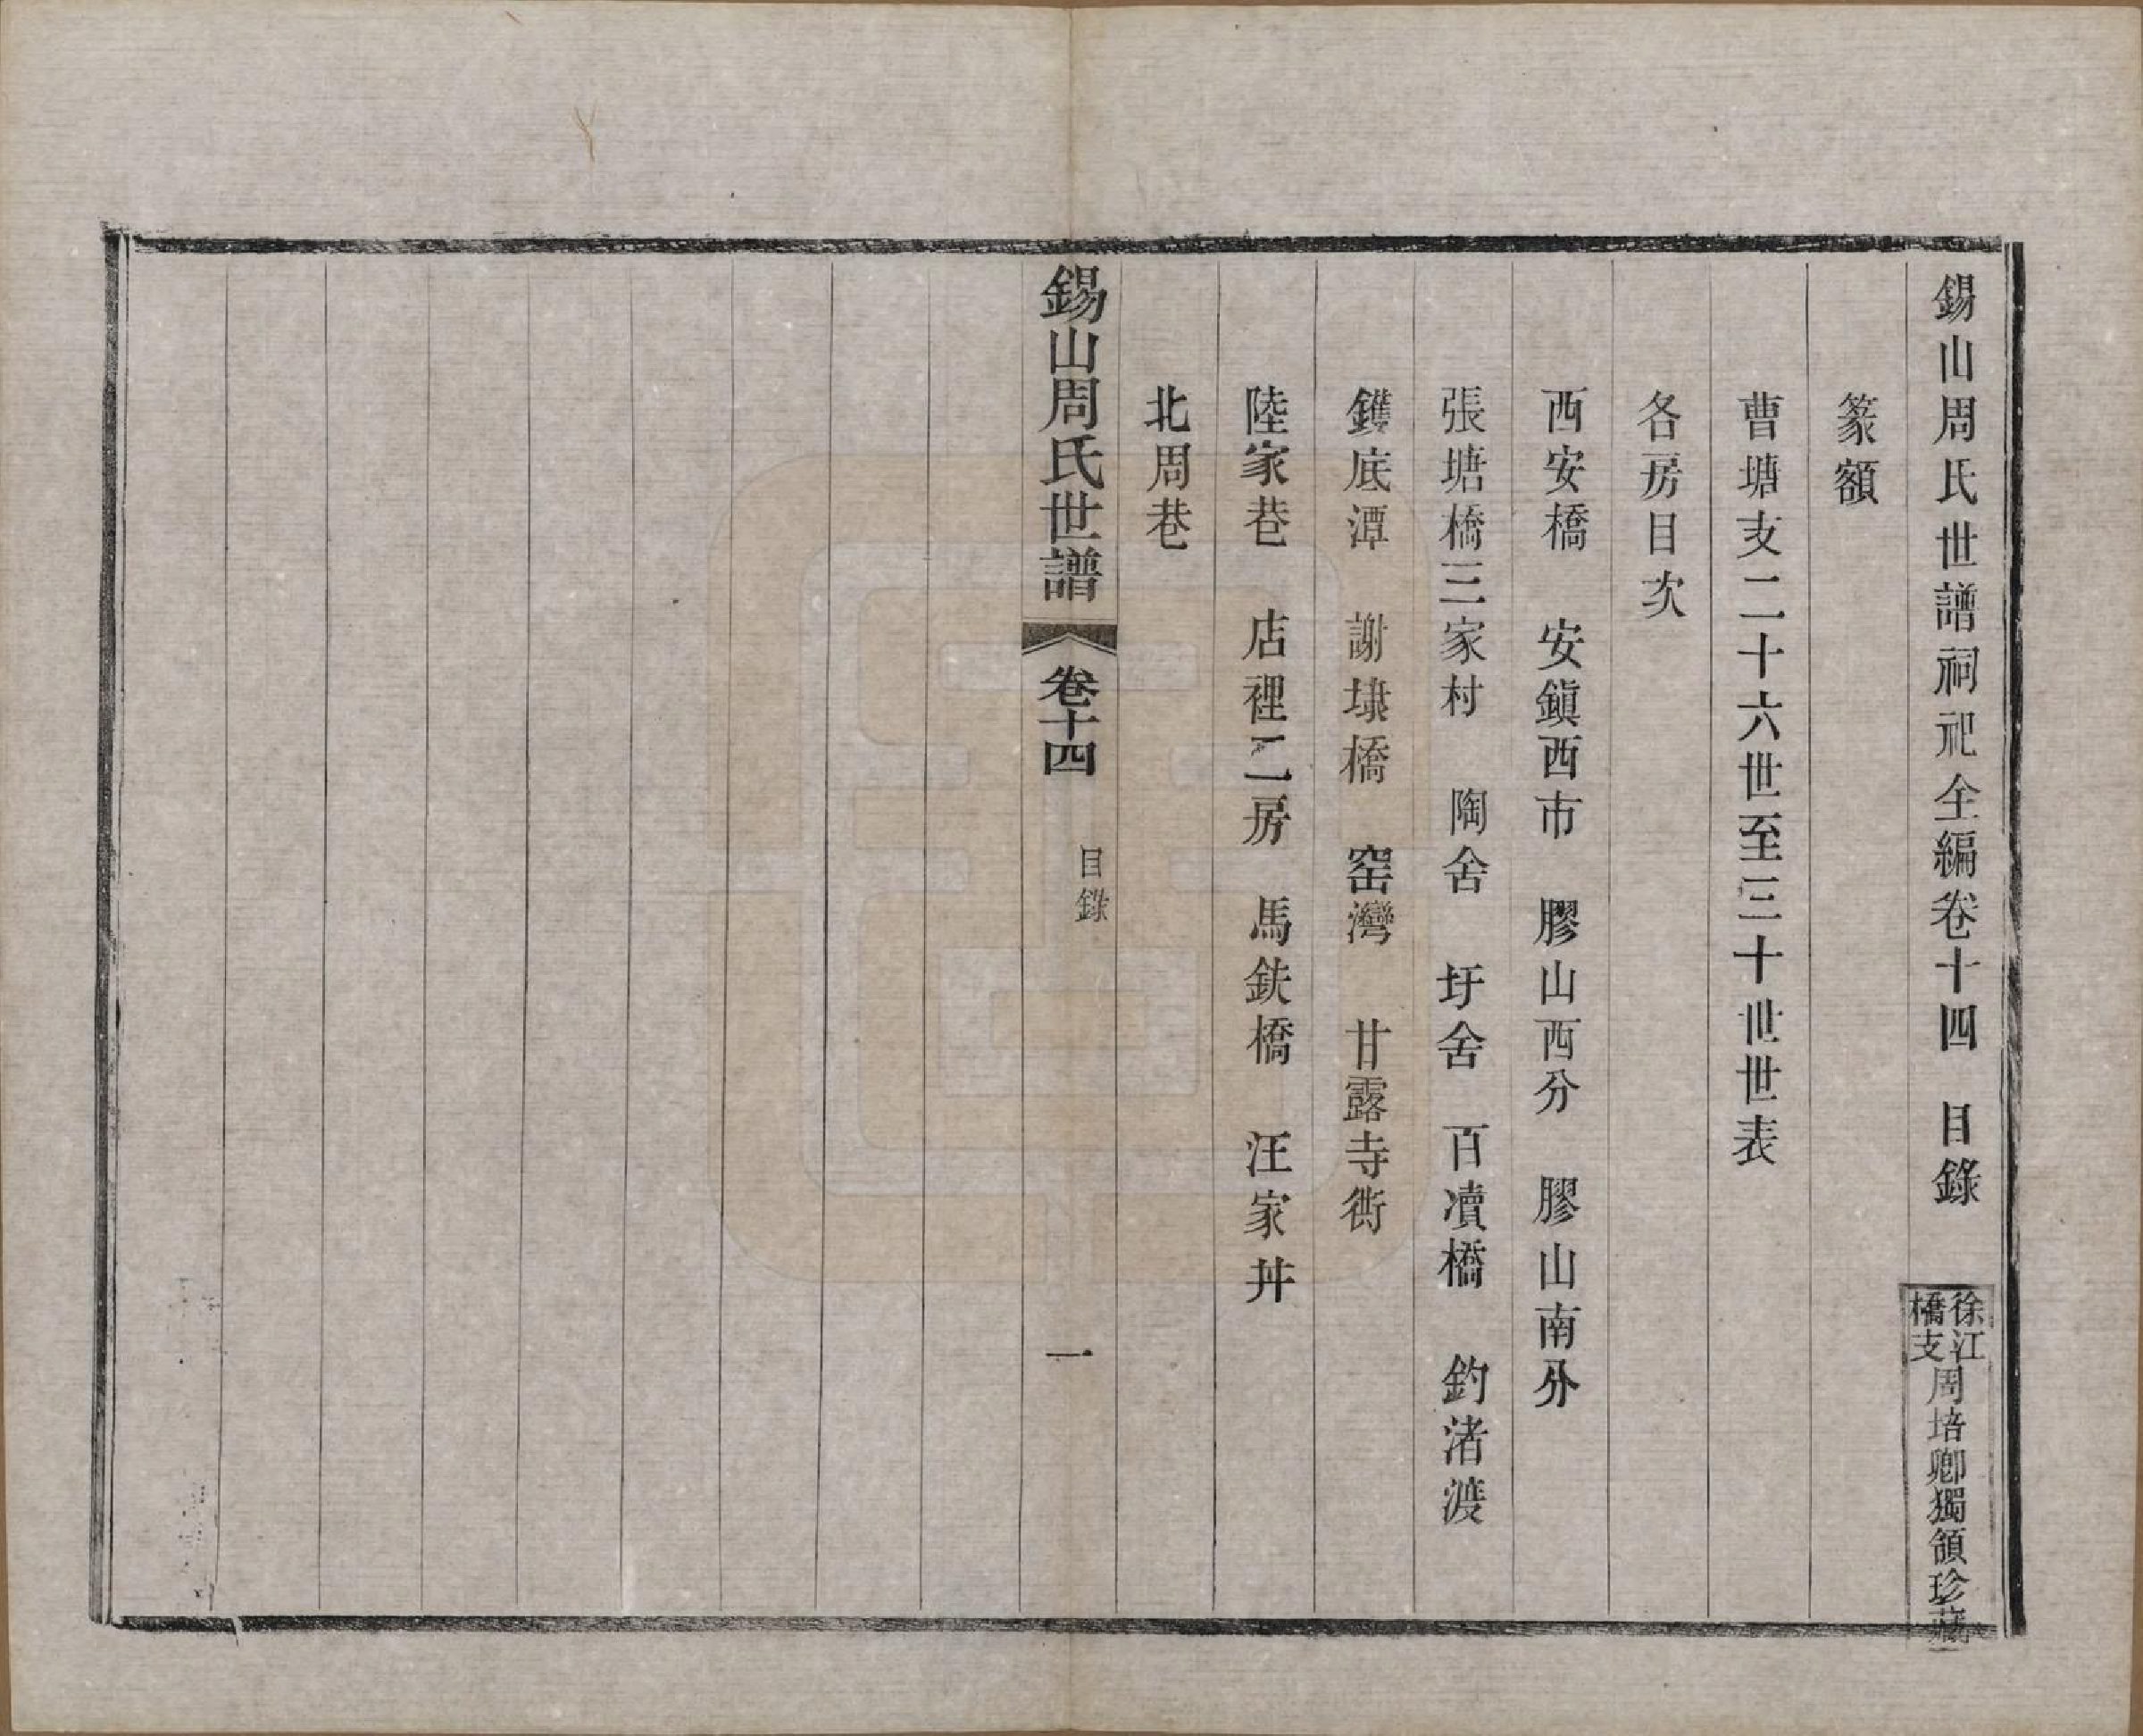 錫山周氏世譜祠祀全編卷十四　目錄
徐江橋支周培卿獨領珍藏
篆額
曹塘支二十六世至三十世世表
各房目次
西安橋　安鎭西市　膠山西分　膠山南分
張塘橋三家村　陶舍　圩舍　百凟橋　釣渚渡
鑊底潭　謝埭橋　窑灣　甘露寺衖
陸家巷　店裡二房　馬鈇橋　汪家丼
北周巷
錫山周氏世譜　卷十四　目錄　一